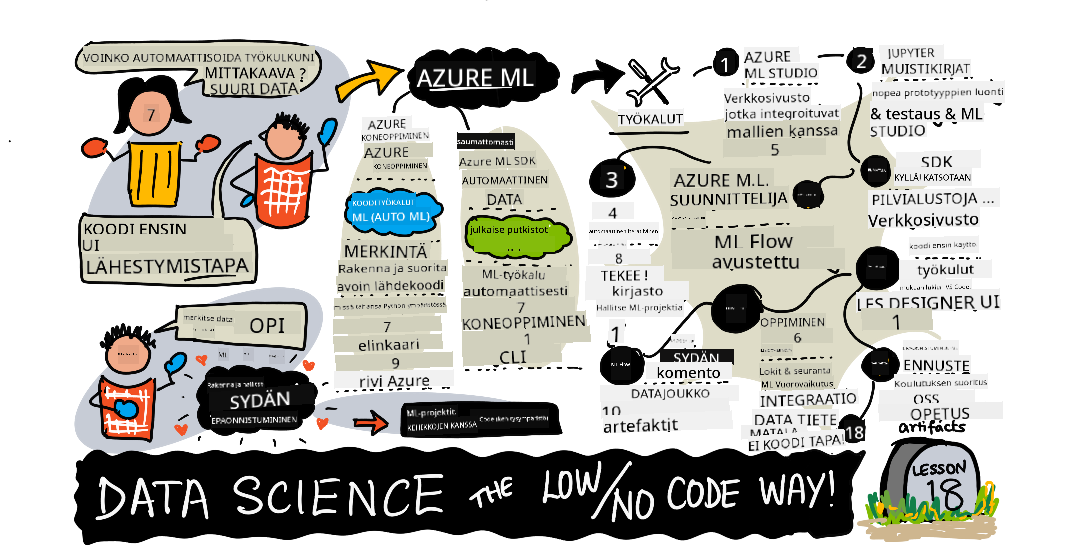 VOINKO AUTOMAATTISOIDA TYÖKULKUNI
MITTAKAAVA ?
SUURI DATA
7
KOODI ENSIN
UI
LÄHESTYMISTAPA
merkitse data
OPI
ML
Rakenna ja hallitse
SYDÄN
EPÄONNISTUMINEN
AZURE ML
AZURE
KONEOPPIMINEN
AZURE
KONEOPPIMINEN
KOODITYÖKALUT
ML (AUTO ML)
MERKINTÄ
Rakenna ja suorita
avoin lähdekoodi
missä tahansa Python-ympäristössä
7
elinkaari
9
rivi Azure
saumattomasti
Azure ML SDK
AUTOMAATTINEN
DATA
julkaise putkistot
ML-työkalu
automaattisesti
7
KONEOPPIMINEN
1
CLI
ML-projektit
KEHIKKOJEN KANSSA
TYÖKALUT
1
AZURE
ML STUDIO
Verkkosivusto
jotka integroituvat
mallien kanssa
5
2
JUPYTER
MUISTIKIRJAT
nopea prototyyppien luonti
& testaus & ML
STUDIO
SDK
KYLLÄ! KATSOTAAN
PILVIALUSTOJA ...
Verkkosivusto
3
4
8
TEKEE !
kirjasto
Hallitse ML-projektia
1
AZURE M.L.
SUUNNITTELIJA
ML Flow
avustettu
koodi ensin käyttö
työkulut
LES DESIGNER UI
1
SYDÄN
komento
DATAJOUKKO
10
artefaktit
OPPIMINEN
6
Lokit & seuranta
ML Vuorovaikutus
INTEGRAATIO
DATA TIETE
MATALA
EI KOODI TAPA!
18
ENNUSTE
Koulutuksen suoritus
OSS
OPETUS
artifacts
DATA SCIENCE THE LOW/NO CODE WAY!
LESSON
18